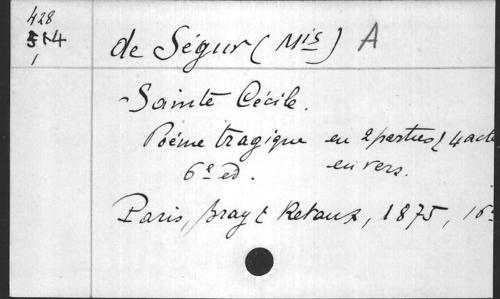 428
514
1
de Ségur (Mis) A
Sainte Cécile.
Poéme tragique en 2 parties & 4 acte
6e ed. en vers.
Paris, Bray & Retaux, 1875, 16